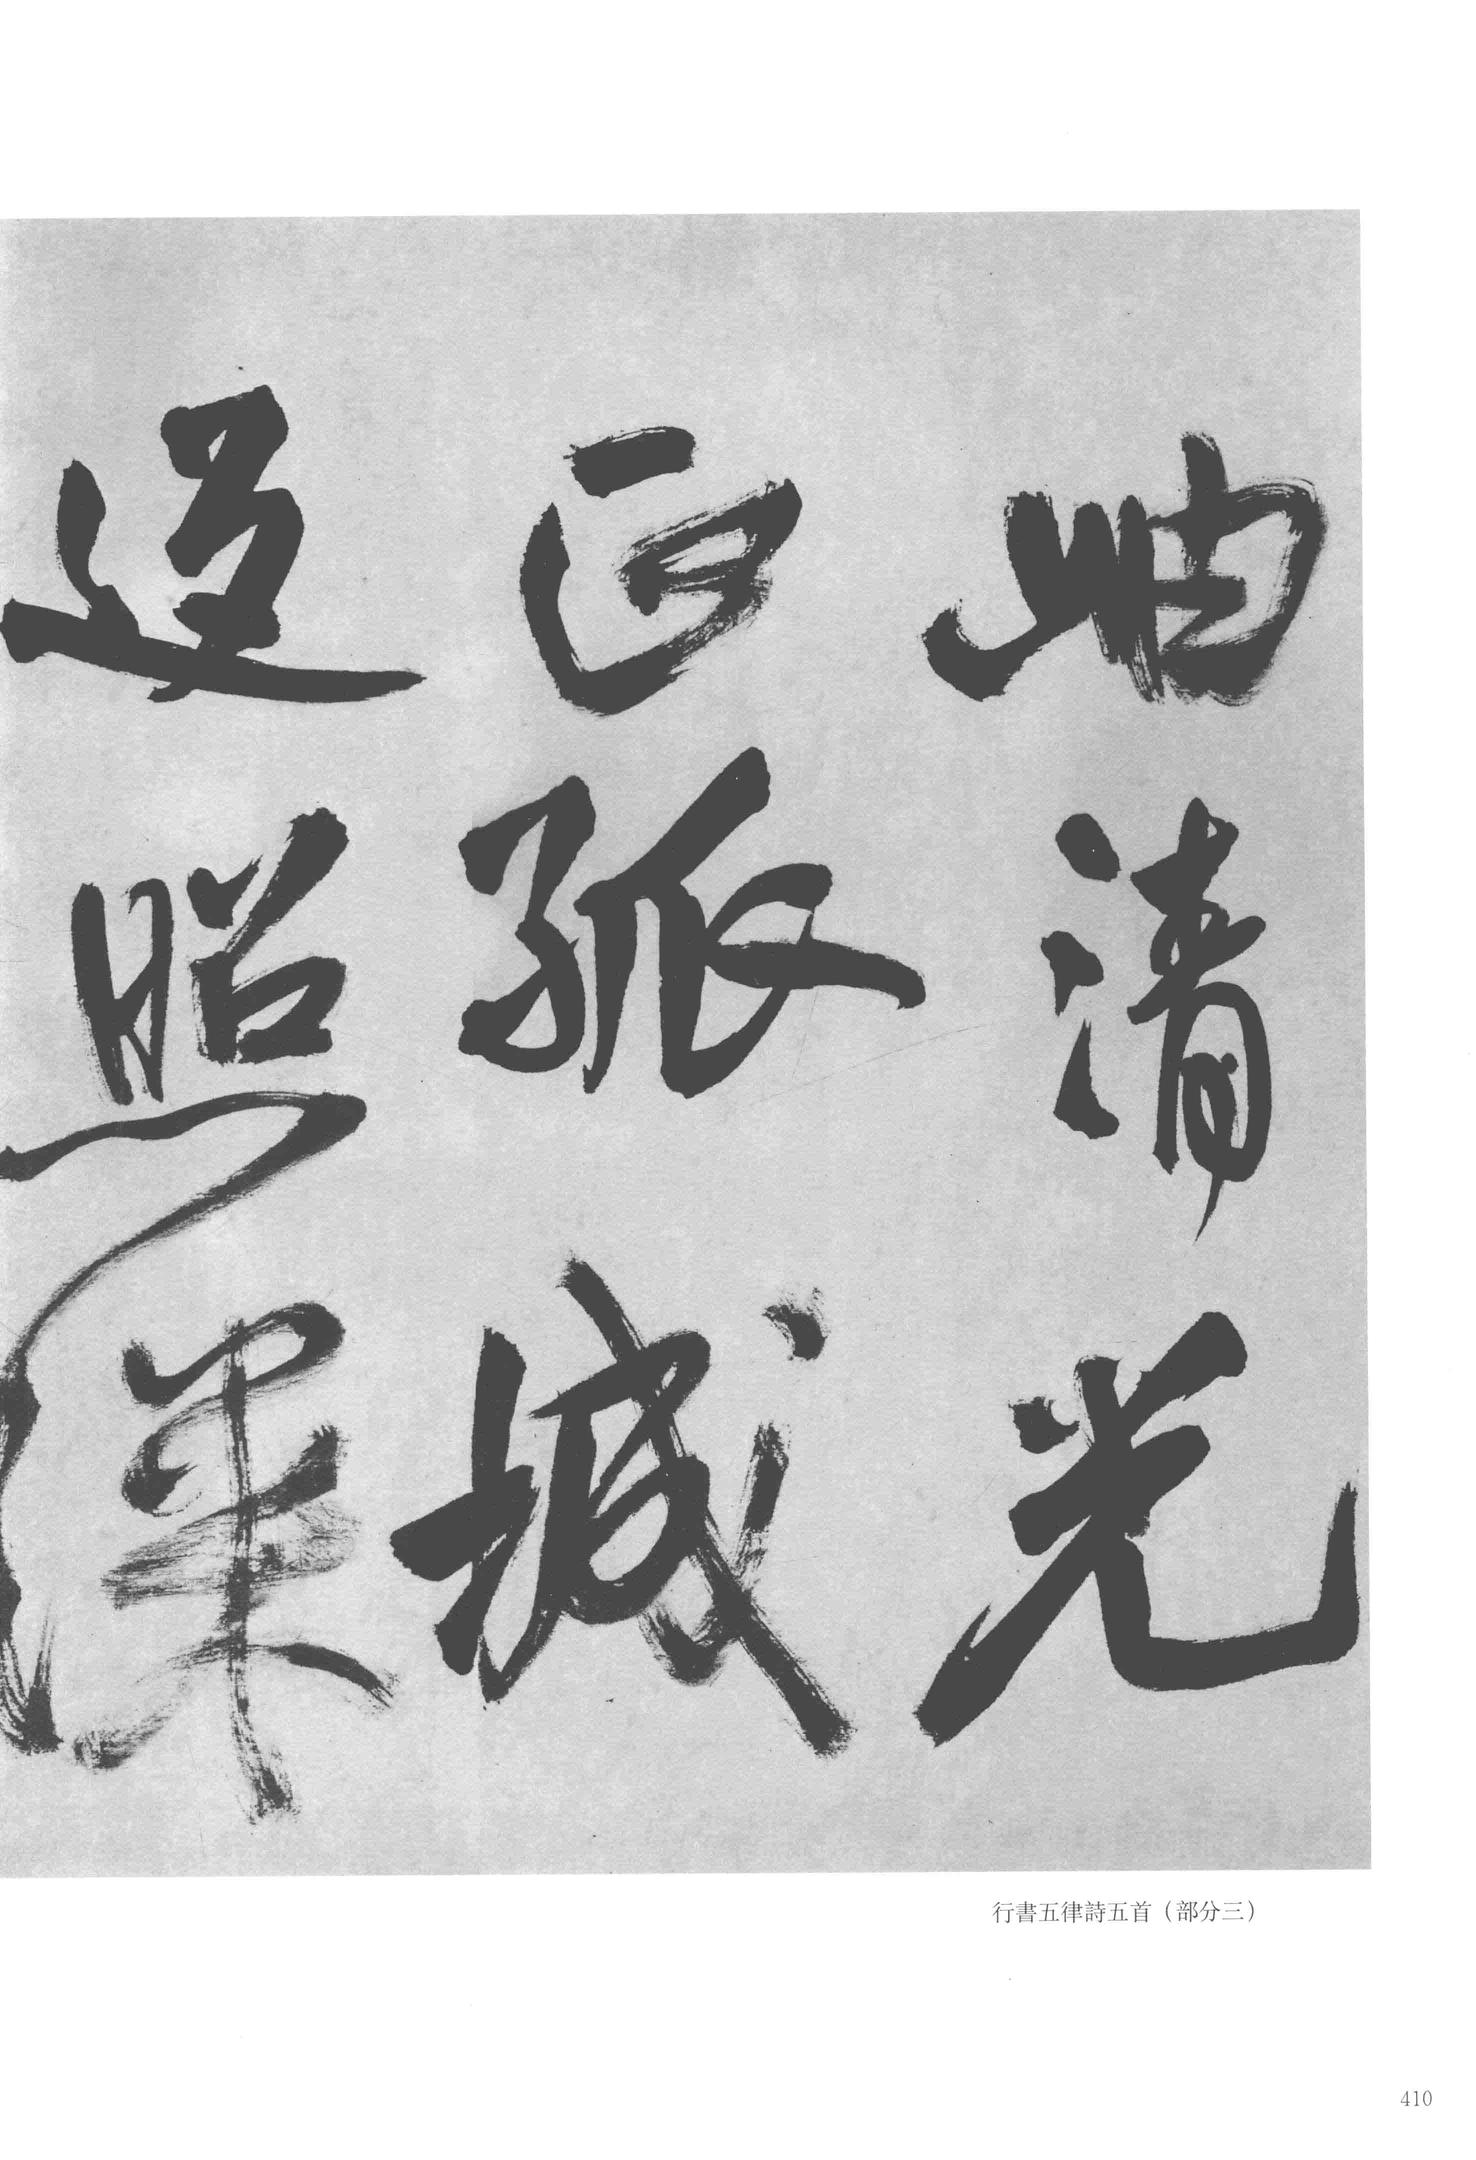 岫清光
正孤城
照
行書五律詩五首（部分三）
410